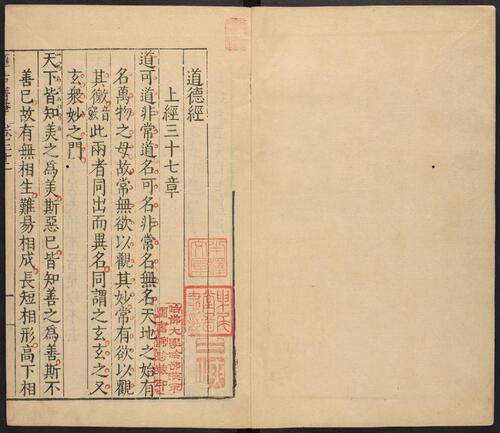 道德經
上經三十七章
道可道非常道名可名非常名無名天地之始有
名萬物之母故常無欲以觀其妙常有欲以觀
其徼音竅此兩者同出而異名同謂之玄玄之又
玄衆妙之門
天下皆知美之爲美斯惡已皆知善之爲善斯不
善已故有無相生難易相成長短相形高下相
哈佛大學哈佛燕京
圖書館珍藏印